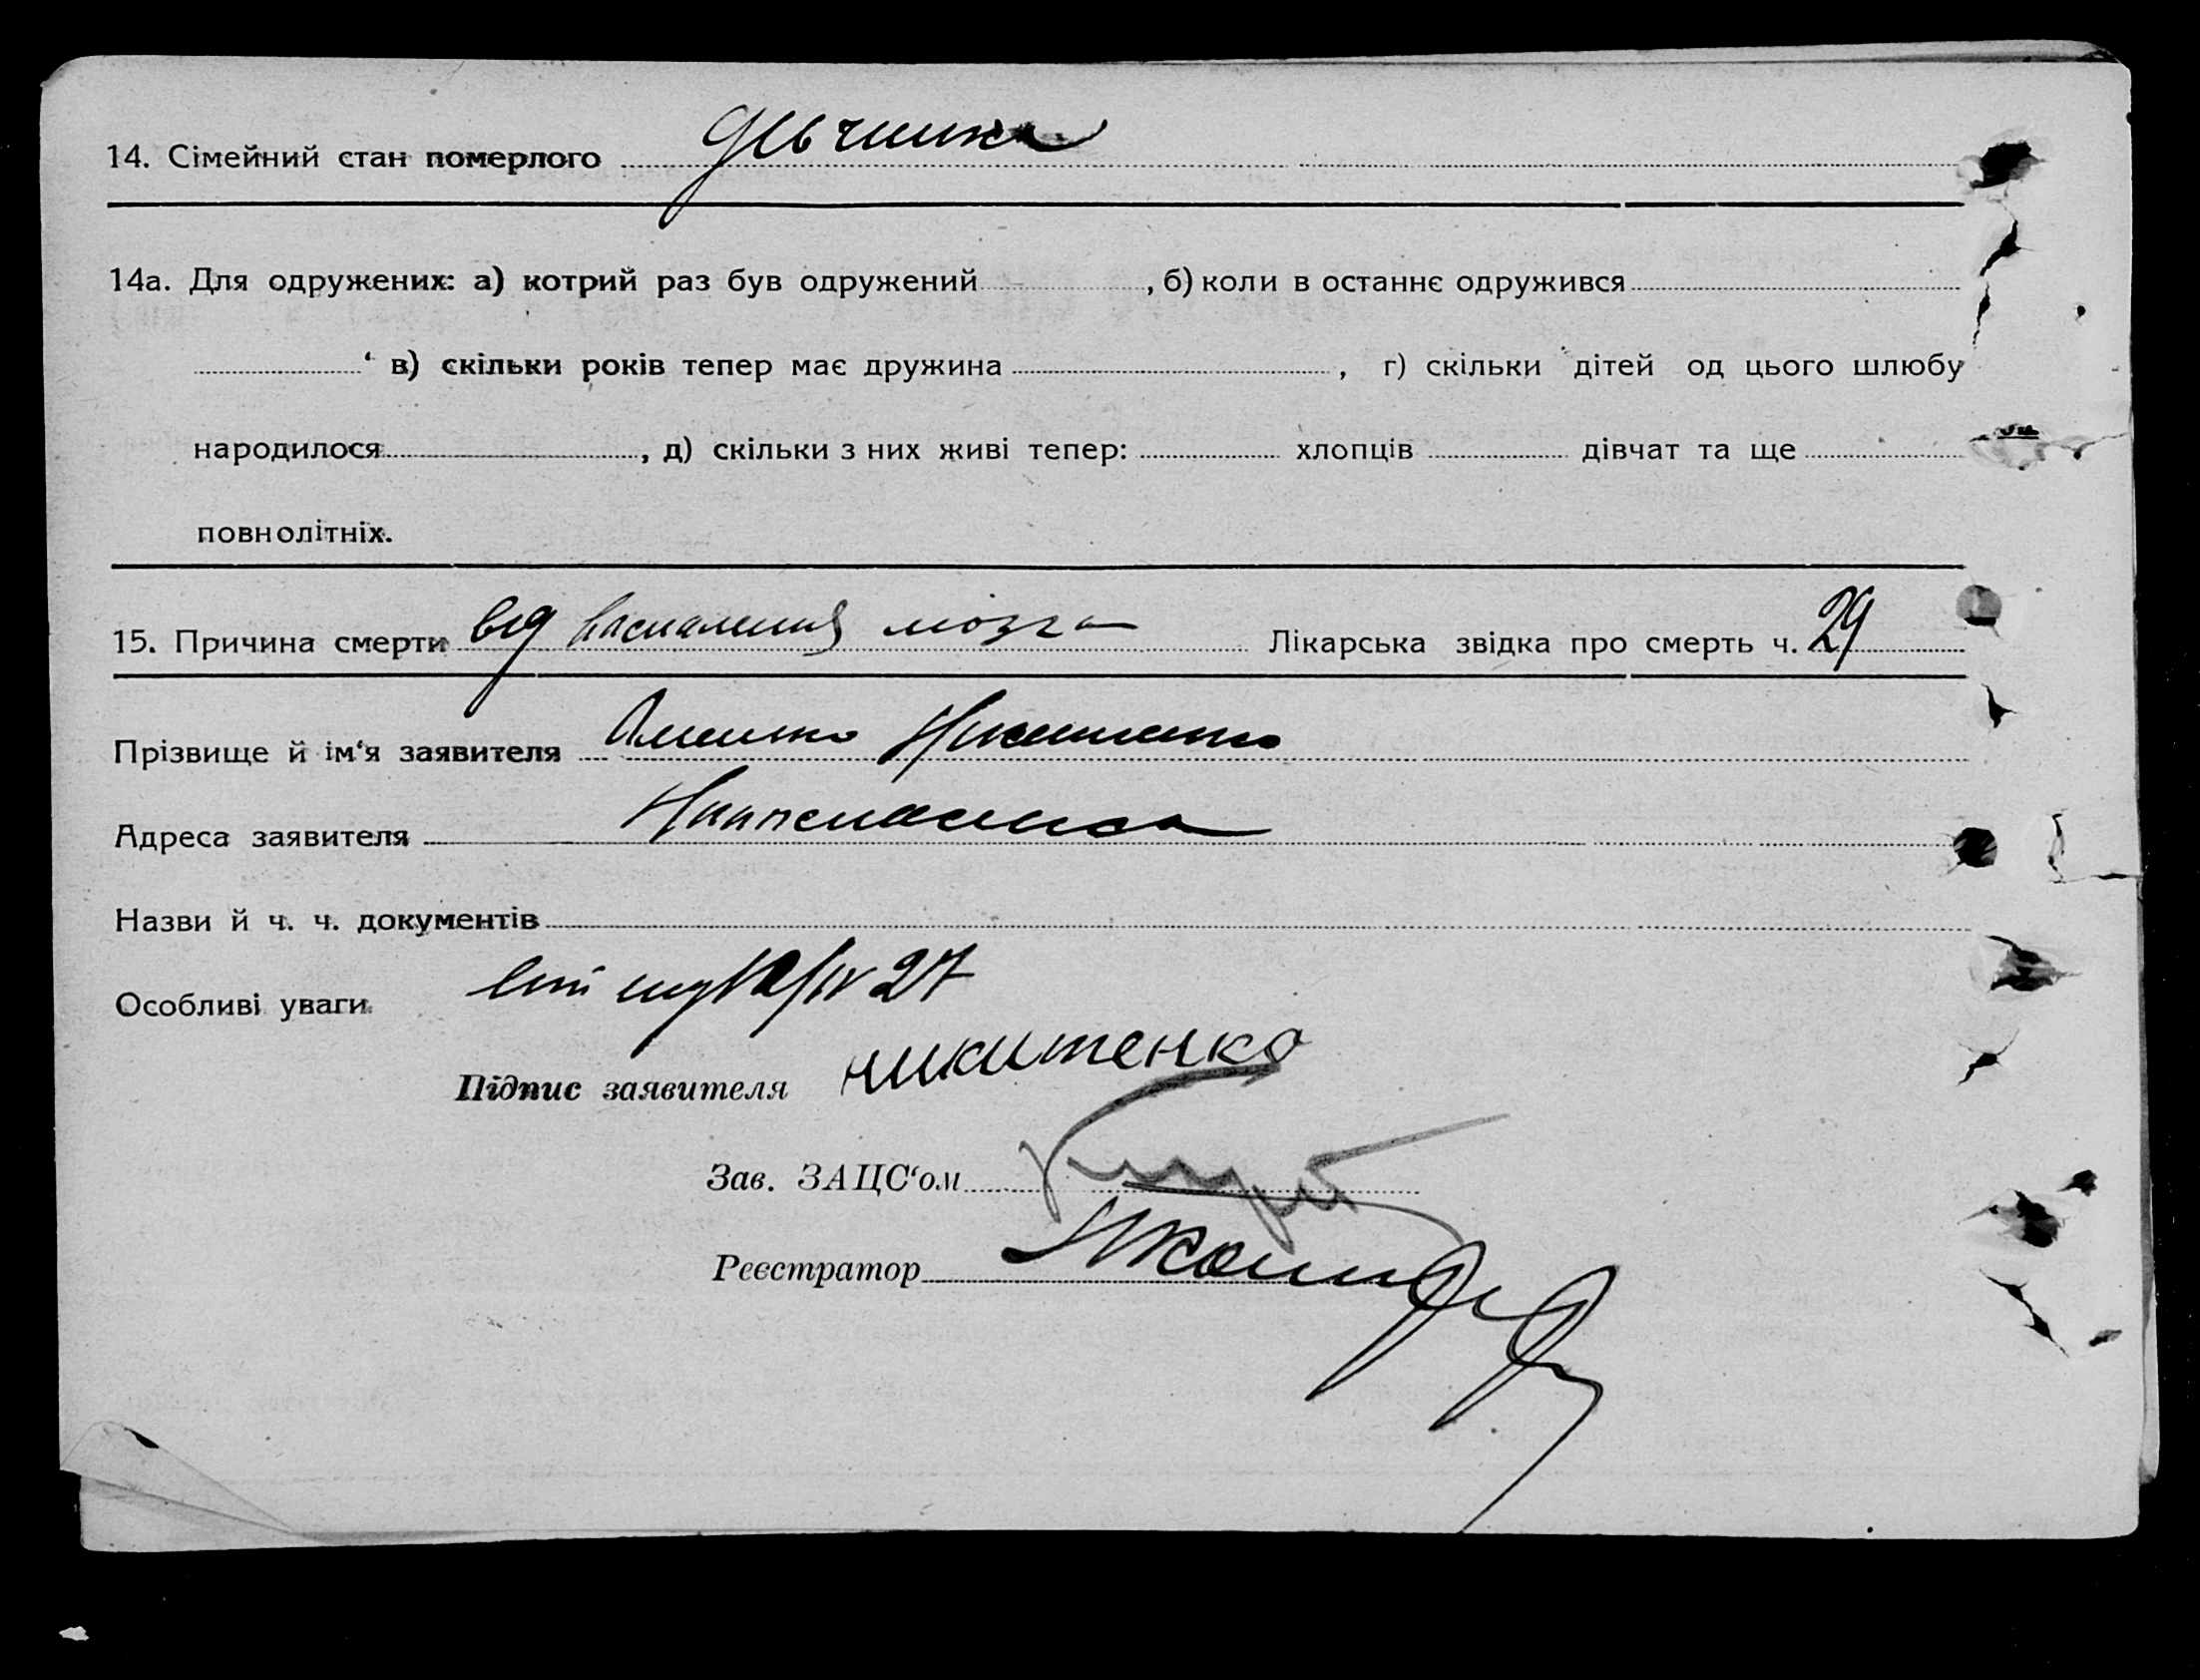 14. Сімейний стан померлого дівчинка
14а. Для одружених: а) котрий раз був одружений , б) коли в останнє одружився
‘ в) скільки років тепер має дружина , г) скільки дітей од цього шлюбу
народилося , д) скільки з них живі тепер: хлопців дівчат та ще
повнолітніх.
15. Причина смерти від воспаления мозга Лікарська звідка про смерть ч. 29
Прізвище й ім‘я заявителя
Адреса заявителя
Назви й ч. ч. документів
Особливі уваги 27
Підпис заявителя никитенко
Зав. ЗАЦС‘ом
Реєстратор